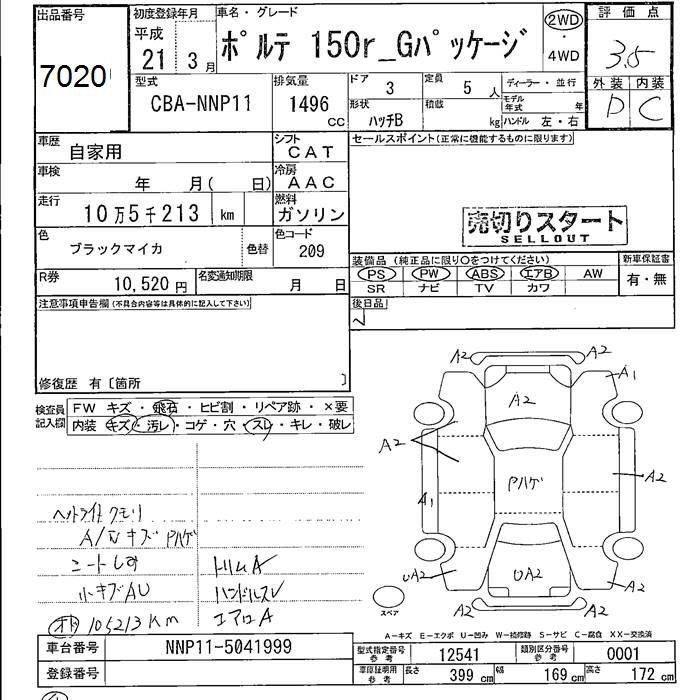 出品番号 初度登録年月 車名・グレード 評価点
7020 平成 21年 3月 ポルテ 150r_Gパッケージ 2WD・4WD 3.5
型式 排気量 ドア 定員 ディーラー・並行 外装 内装
CBA-NNP11 1496 CC 3 5人 モデル年式 年 D C
形状 積載
ハッチB kg ハンドル 左・右
車歴 自家用 シフト CAT セールスポイント(正常に機能するものに限ります)
車検 年 月( 日) 冷房 AAC
走行 10万5千213 km 燃料 ガソリン
売切りスタート
SELLOUT
色 ブラックマイカ 色替 色コード 209
装備品(純正品に限り○をつけてください) 新車保証書
PS PW ABS エアB AW 有・無
SR ナビ TV カワ
R券 10,520円 名変通知期限 月 日
注意事項申告欄(不具合内容等は具体的に記入して下さい) 後日品
修復歴 有〔箇所 〕
検査員記入欄 FW キズ・飛石・ヒビ割・リペア跡・×要
内装 キズ・汚レ・コゲ・穴・スレ・キレ・破レ
A2 A2
A1
A2
A2
Pハゲ A2
A1
UA2 UA2 A2
A2 A2
スペア
ヘットライトクモリ
A/Wキズ Pハゲ
トリムA
小キズAU ハンドルスレ
105213Km エアロA
A-キズ E-エクボ U-凹み W-補修跡 S-サビ C-腐食 XX-交換済
車台番号 NNP11-5041999
型式指定番号 参考 12541 類別区分番号 参考 0001
登録番号
車庫証明用 参考 長さ 399 cm 幅 169 cm 高さ 172 cm